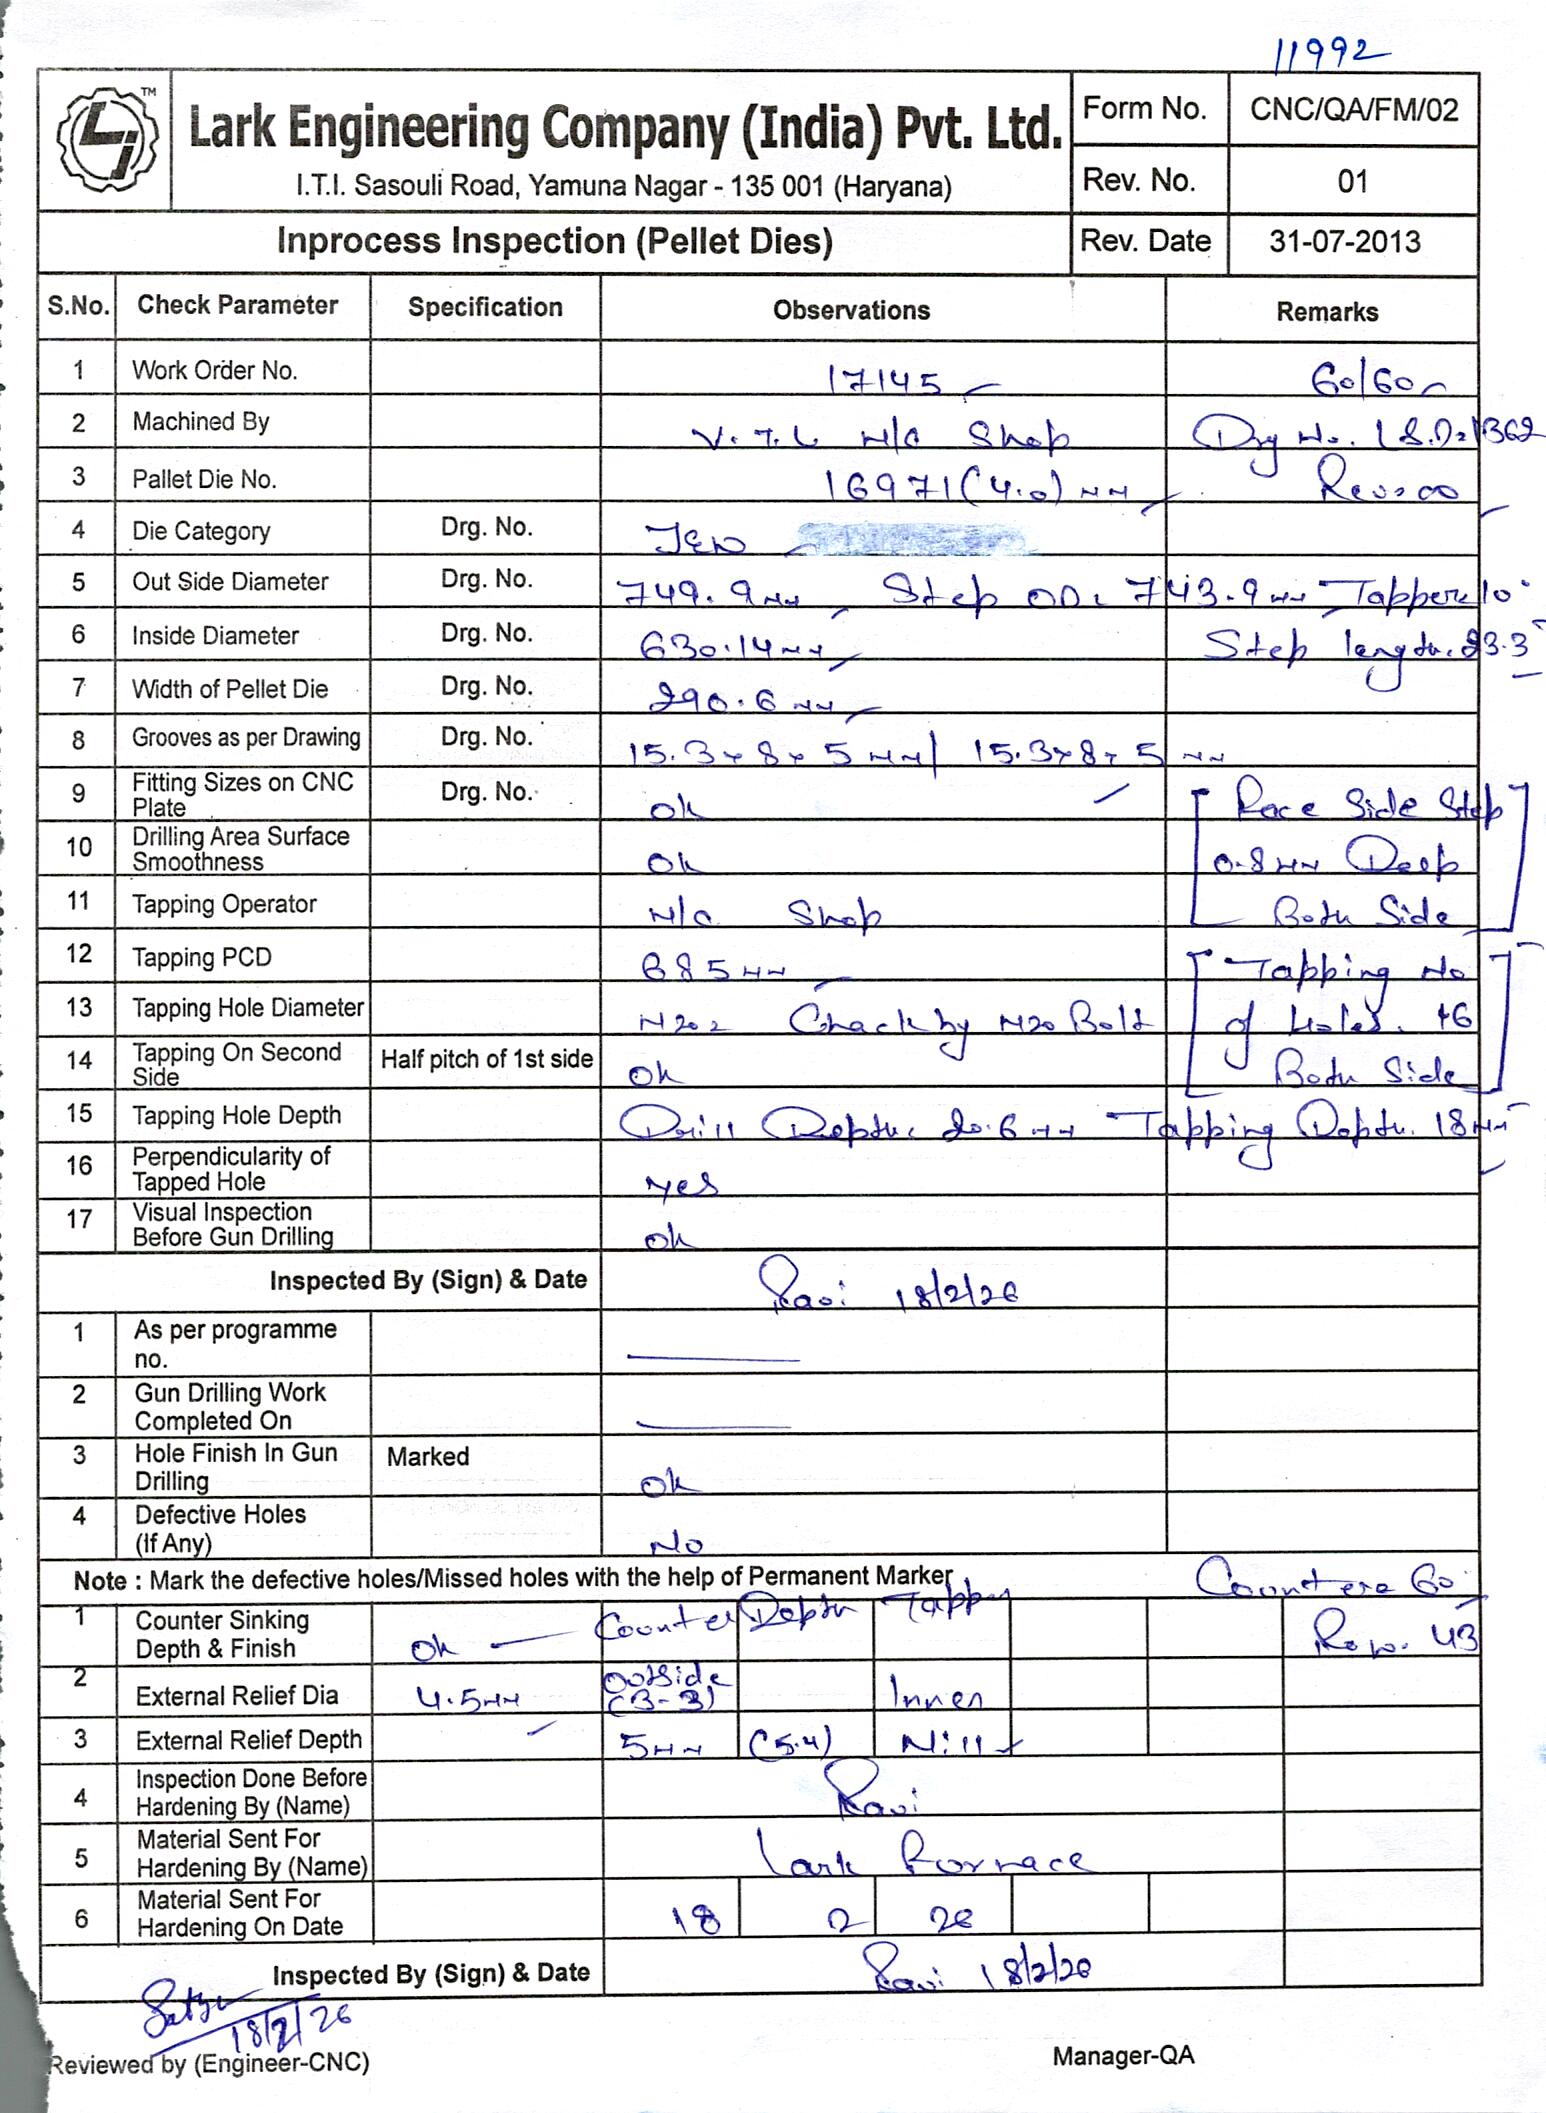 11992
TM
Lark Engineering Company (India) Pvt. Ltd.
I.T.I. Sasouli Road, Yamuna Nagar - 135 001 (Haryana)
Form No. CNC/QA/FM/02
Rev. No. 01
Inprocess Inspection (Pellet Dies) Rev. Date 31-07-2013
S.No. Check Parameter Specification Observations Remarks
1 Work Order No. 17145 60/60
2 Machined By V.T.L M/C Shop Drg No. LSD21362
3 Pallet Die No. 16971 (4.0) mm Rev:00
4 Die Category Drg. No.
5 Out Side Diameter Drg. No. 749.9mm Step OD: 743.9mm Tapper 10°
6 Inside Diameter Drg. No. 630.14mm Step length. 23.3
7 Width of Pellet Die Drg. No. 290.6 mm
8 Grooves as per Drawing Drg. No. 15.3x8x5mm / 15.3x8x5mm
9 Fitting Sizes on CNC Plate Drg. No. Ok Race Side Step
10 Drilling Area Surface Smoothness Ok 0.8mm Deep
11 Tapping Operator M/C Shop Both Side
12 Tapping PCD 685mm Tapping No
13 Tapping Hole Diameter M20 Chack by M20 Bolt of Holes. 16
14 Tapping On Second Side Half pitch of 1st side Ok Both Side
15 Tapping Hole Depth Drill Depth. 20.6mm Tapping Depth. 18mm
16 Perpendicularity of Tapped Hole yes
17 Visual Inspection Before Gun Drilling Ok
Inspected By (Sign) & Date Ravi 18/2/26
1 As per programme no.
2 Gun Drilling Work Completed On
3 Hole Finish In Gun Drilling Marked Ok
4 Defective Holes (If Any) No
Note : Mark the defective holes/Missed holes with the help of Permanent Marker Counter 60
1 Counter Sinking Depth & Finish Ok Counter Depth Tapping Row. 43
2 External Relief Dia 4.5mm Outside (3-3) Inner
3 External Relief Depth 5mm (5.4) Nill
4 Inspection Done Before Hardening By (Name) Ravi
5 Material Sent For Hardening By (Name) Lark Fornace
6 Material Sent For Hardening On Date 18 2 26
Inspected By (Sign) & Date Ravi 18/2/26
18/2/26
Reviewed by (Engineer-CNC) Manager-QA